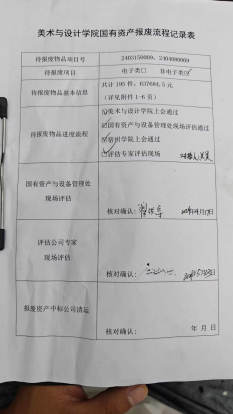 美术与设计学院国有资产报废流程记录表
待报废物品项目号 2403150009、2404090009
待报废项目 电子类□ 非电子类☑
待报废物品基本信息
共计 195 件，637684.5 元
（详见附件 1-6 页）
待报废物品进度流程
☑美术与设计学院上会通过
☑国有资产与设备管理处现场评估通过
☑宿州学院上会通过
☑评估专家评估现场
国有资产与设备管理处
现场评估
核对确认：
评估公司专家
现场评估
核对确认：
报废资产中标公司清运
核对确认： 年 月 日